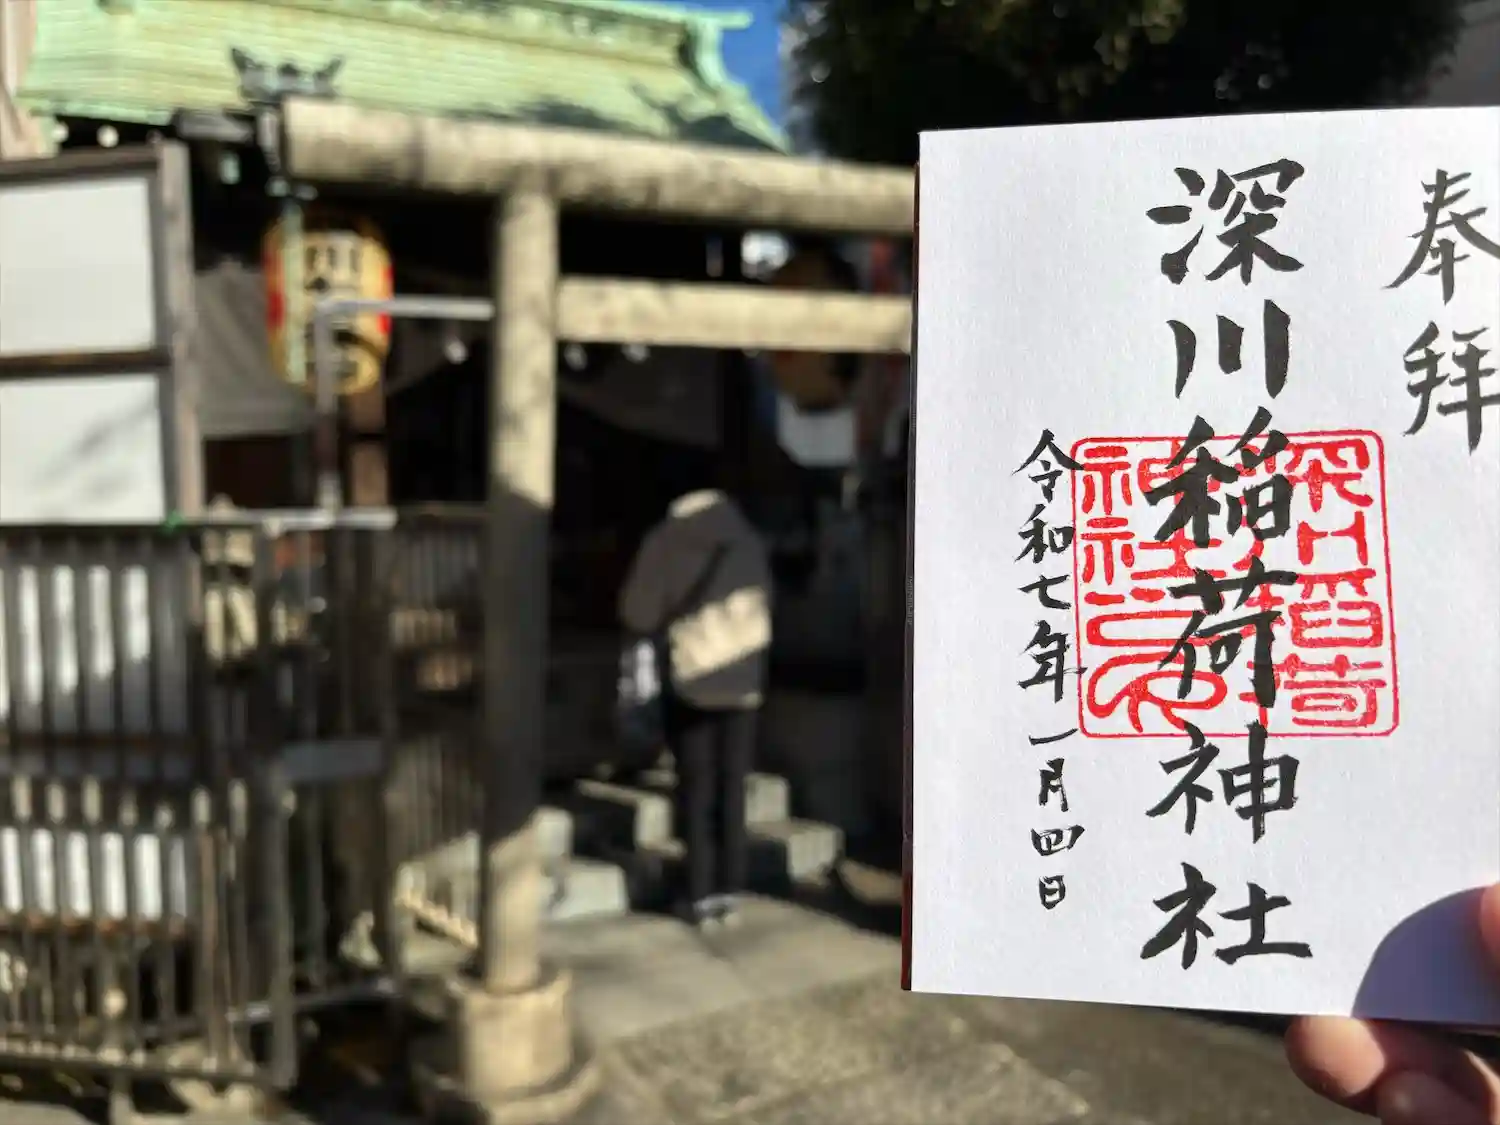 奉拝
深川稲荷神社
深川稲荷
神社之印
令和七年一月四日